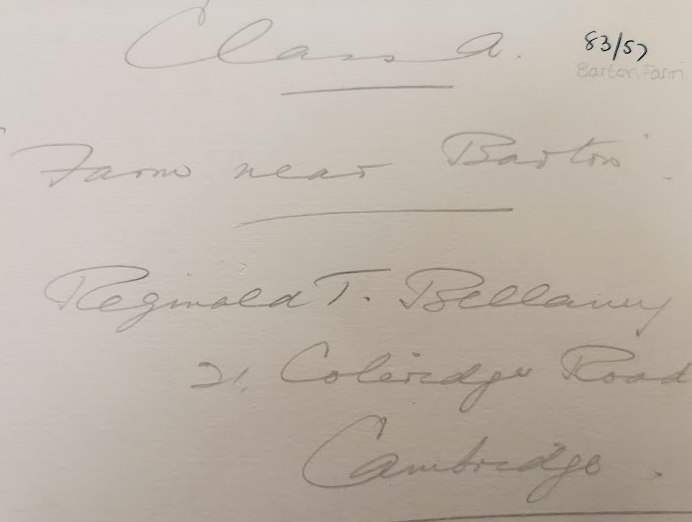 Class A.
83/57
Barton Farm
"Farm near Barton".
Reginald T. Bellamy
21, Coleridge Road
Cambridge.